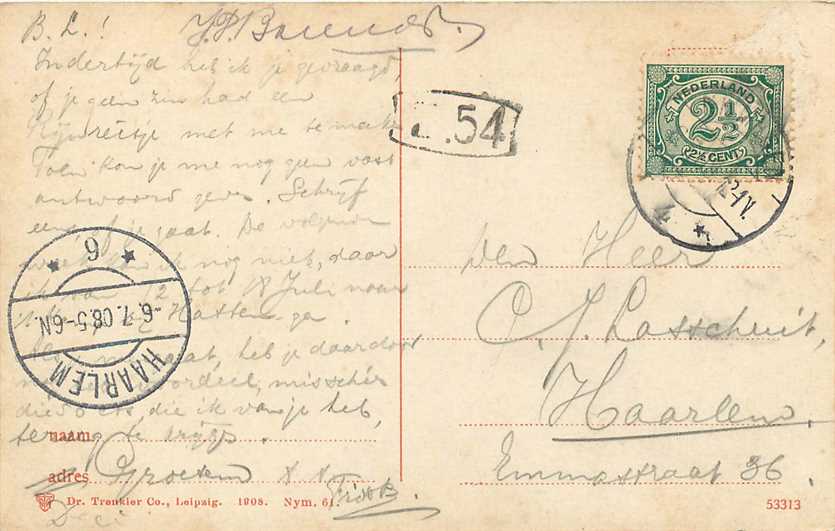 B. L.!
Indertijd heb ik je gevraagd
of je geen zin had een
Rijnreisje met me te maken
Toen kon je me nog geen vast
antwoord geven. Schrijf
eens of je gaat. De volgende
ik nog niet, daar
ik van 12 tot 18 Juli naar
Hattem ga.
gaat, heb je daardoor
voordeel, misschien
die 50 cts, die ik van je heb,
terug te krijgen.
naam
adres Groeten
Dr. Trenkler Co., Leipzig. 1908. Nym. 61.
HAARLEM
6
-6.7.08.5-6N.
.54
NEDERLAND
2½
(2½ CENT)
12-1V.
den Heer
C. J. Lasschuit,
Haarlem.
Emmastraat 36.
53313